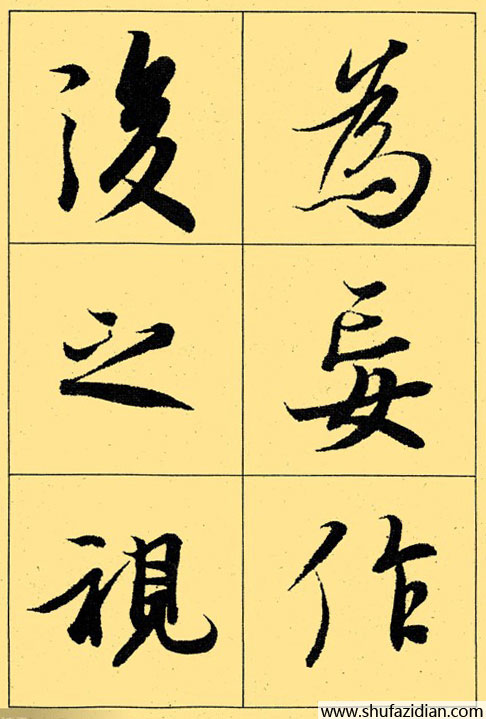 為妄作
後之視
www.shufazidian.com